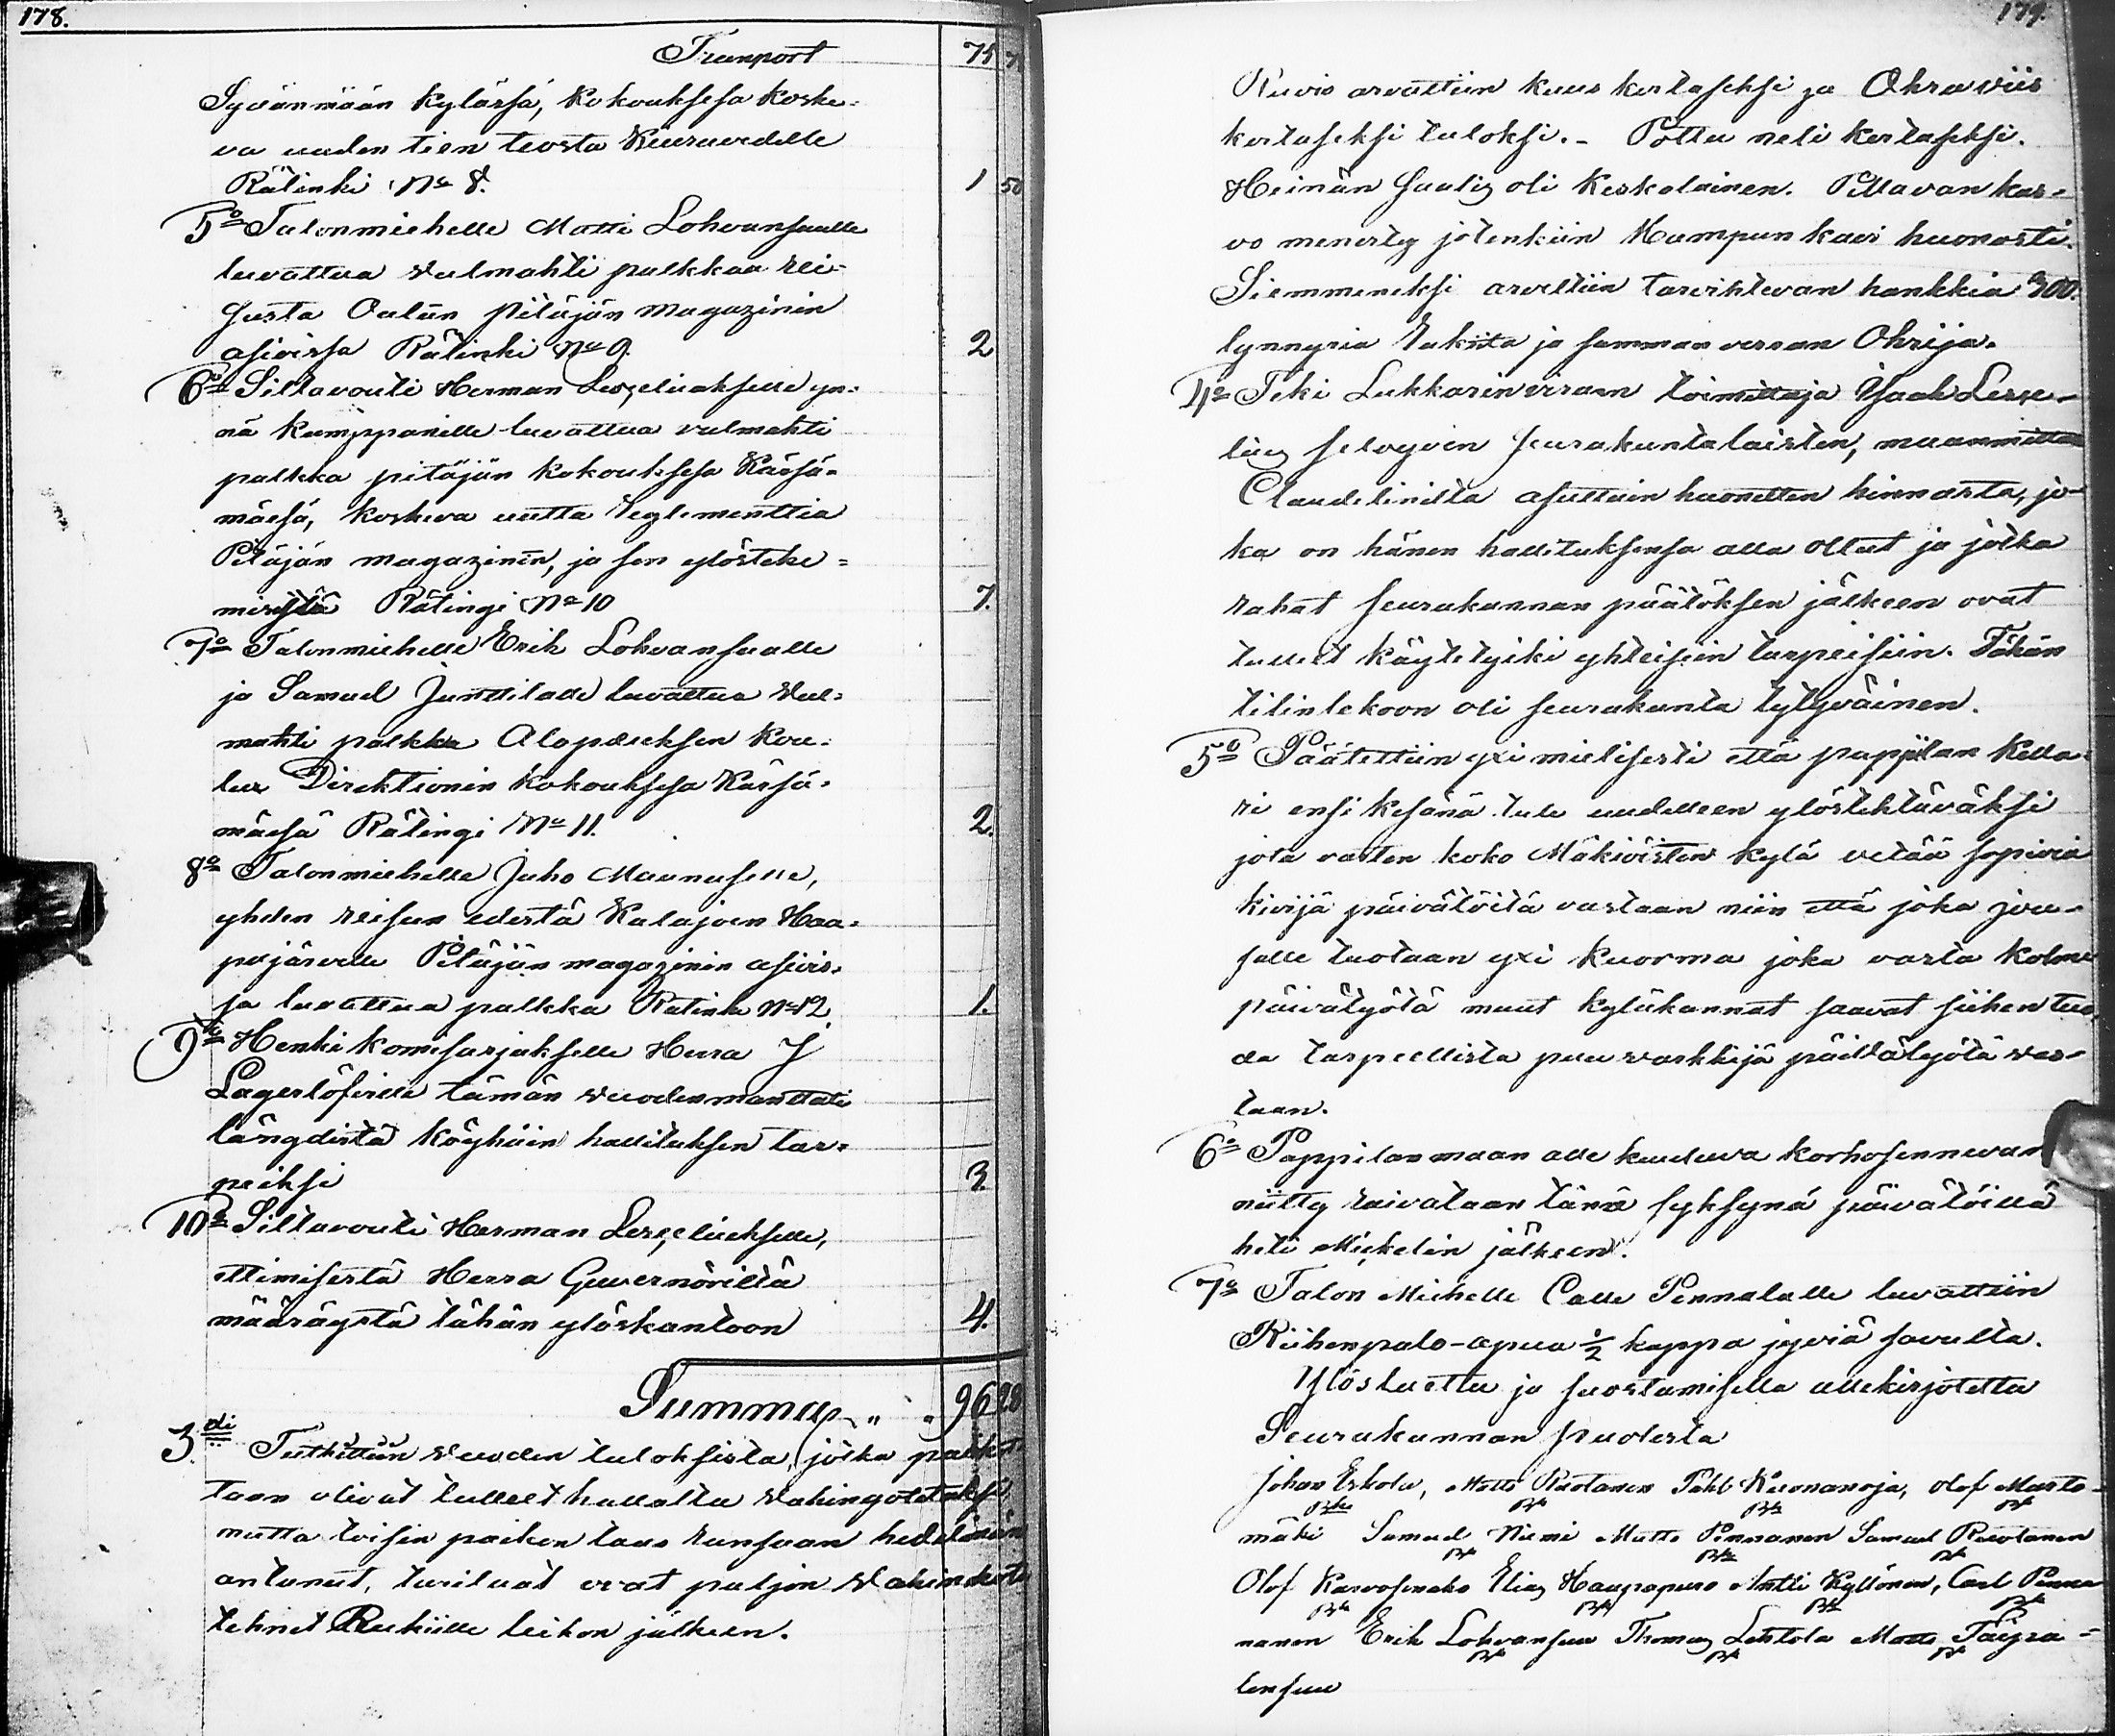 178.
Transport 75 7
Syvänmään kylässä, kokouksesa koske-
va uuden tien teosta Kiuruvedelle
Rätinki No 8. 1 50
5o Talonmiehelle Matti Lohvansuulle
luvattua valmahti palkkaa rei-
susta Oulun pitäjän magazinin
asioissa Rätinki No 9. 2
6o Siltavouti Herman Lesceliukselle yn-
nä kumppanille luvattua valmahti
palkka pitäjän kokouksesa Kärsä-
mäesä, koskeva uutta reglementtia
Pitäjän magazinin, ja sen ylösteke-
misestä Rätingi No 10 7.
7o Talonmiehelle Erik Lohvansuulle
ja Samuel Junttilalle luvattua val-
mahti palkka Alapäseksen kou-
lun Direktionin kokouksesa Kärsä-
mäesä Rätingi No 11. 2.
8o Talonmiehelle Juho Maunuselle,
yhden reisun edestä Kalajoen Haa-
pajärvelle Pitäjän magazinin asiois-
sa luvattua palkka Rätink No 12. 1.
9o Henkikomisarjukselle Herra J
Lagerlöfville tämän vuoden manttali
längdistä köyhäin hallituksen tar-
peiksi 3.
10o Siltavouti Herman Lesceliukselle,
ettimisestä Herra Guvernöriltä
määräystä tähän ylöskantoon 4.
Summa 96 28
3di Tutkittiin vuoden tuloksista, jotka paikot
taan olivat tulleet hallalta vahingotetuksi,
mutta toisin paikon taas runsaan hedelmän
antanut, turilaat ovat paljon vahinkota
tehnet Rukiille leikon jälkeen.
179.
Ruvis arvattiin kuus kertaseksi ja Ohra viis
kertaseksi tuloksi. - Pottu neli kertaseksi.
Heinän saalis oli keskolainen. Pellavan kas-
vo menestys jotenkiin Hampun kavi huonosti.
Siemmeneksi arveltiin tarvihtevan hankkia 300.
tynnyria Rukiita ja samman verran Ohrija.
4o Teki Lukkarinviraan toimittaja Isaak Lesce-
lius selvyvin seurakuntalaisten, maanmittari
Claudelinilta asuttuin huonetten hinnasta, jo-
ka on hänen hallituksensa alla ollut ja jotka
rahat seurakunnan päätöksen jälkeen ovat
tulleet käytetyiki yhteisiin tarpeisiin. Tähän
tilintekoon oli seurakunta tytyväinen.
5o Päätettiin yximielisesti että pappilan kella-
ri ensi kesänä tule uudelleen ylöstehtäväksi
jota vasten koko Mäkiöisten kylä vetää sopivia
kivijä päivätöitä vastaan niin että joka jou-
selle tuotaan yxi kuorma joka vasta kolme
päivätyötä muut kyläkannat saavat siihen tuo
da tarpeellista puu varkkijä päivätyötä vas-
taan.
6o Pappilan maan alle kuuluva korhosennevan
niitty raivataan tänä syksynä päivätöillä
heti Mickelin jälkeen.
7o Talon Miehelle Calle Pennalalle luvattiin
Riihenpalo-apua 1/2 kappa jyviä savulta.
Ylösluettu ja suostumisella allekirjotettu
Seurakunnan puolesta
Johan Eskola, Matts Ruotanen Pehr Kuonanoja, Olof Masto-
mäki Samuel Niemi Matts Pennanen Samuel Ruotanen
Olof Karvosenaho Elias Haapapuro Antti Kyllönen, Carl Penna
nanen Erik Lohvansuu Thomas Lehtola Matts Täipa-
lensuu